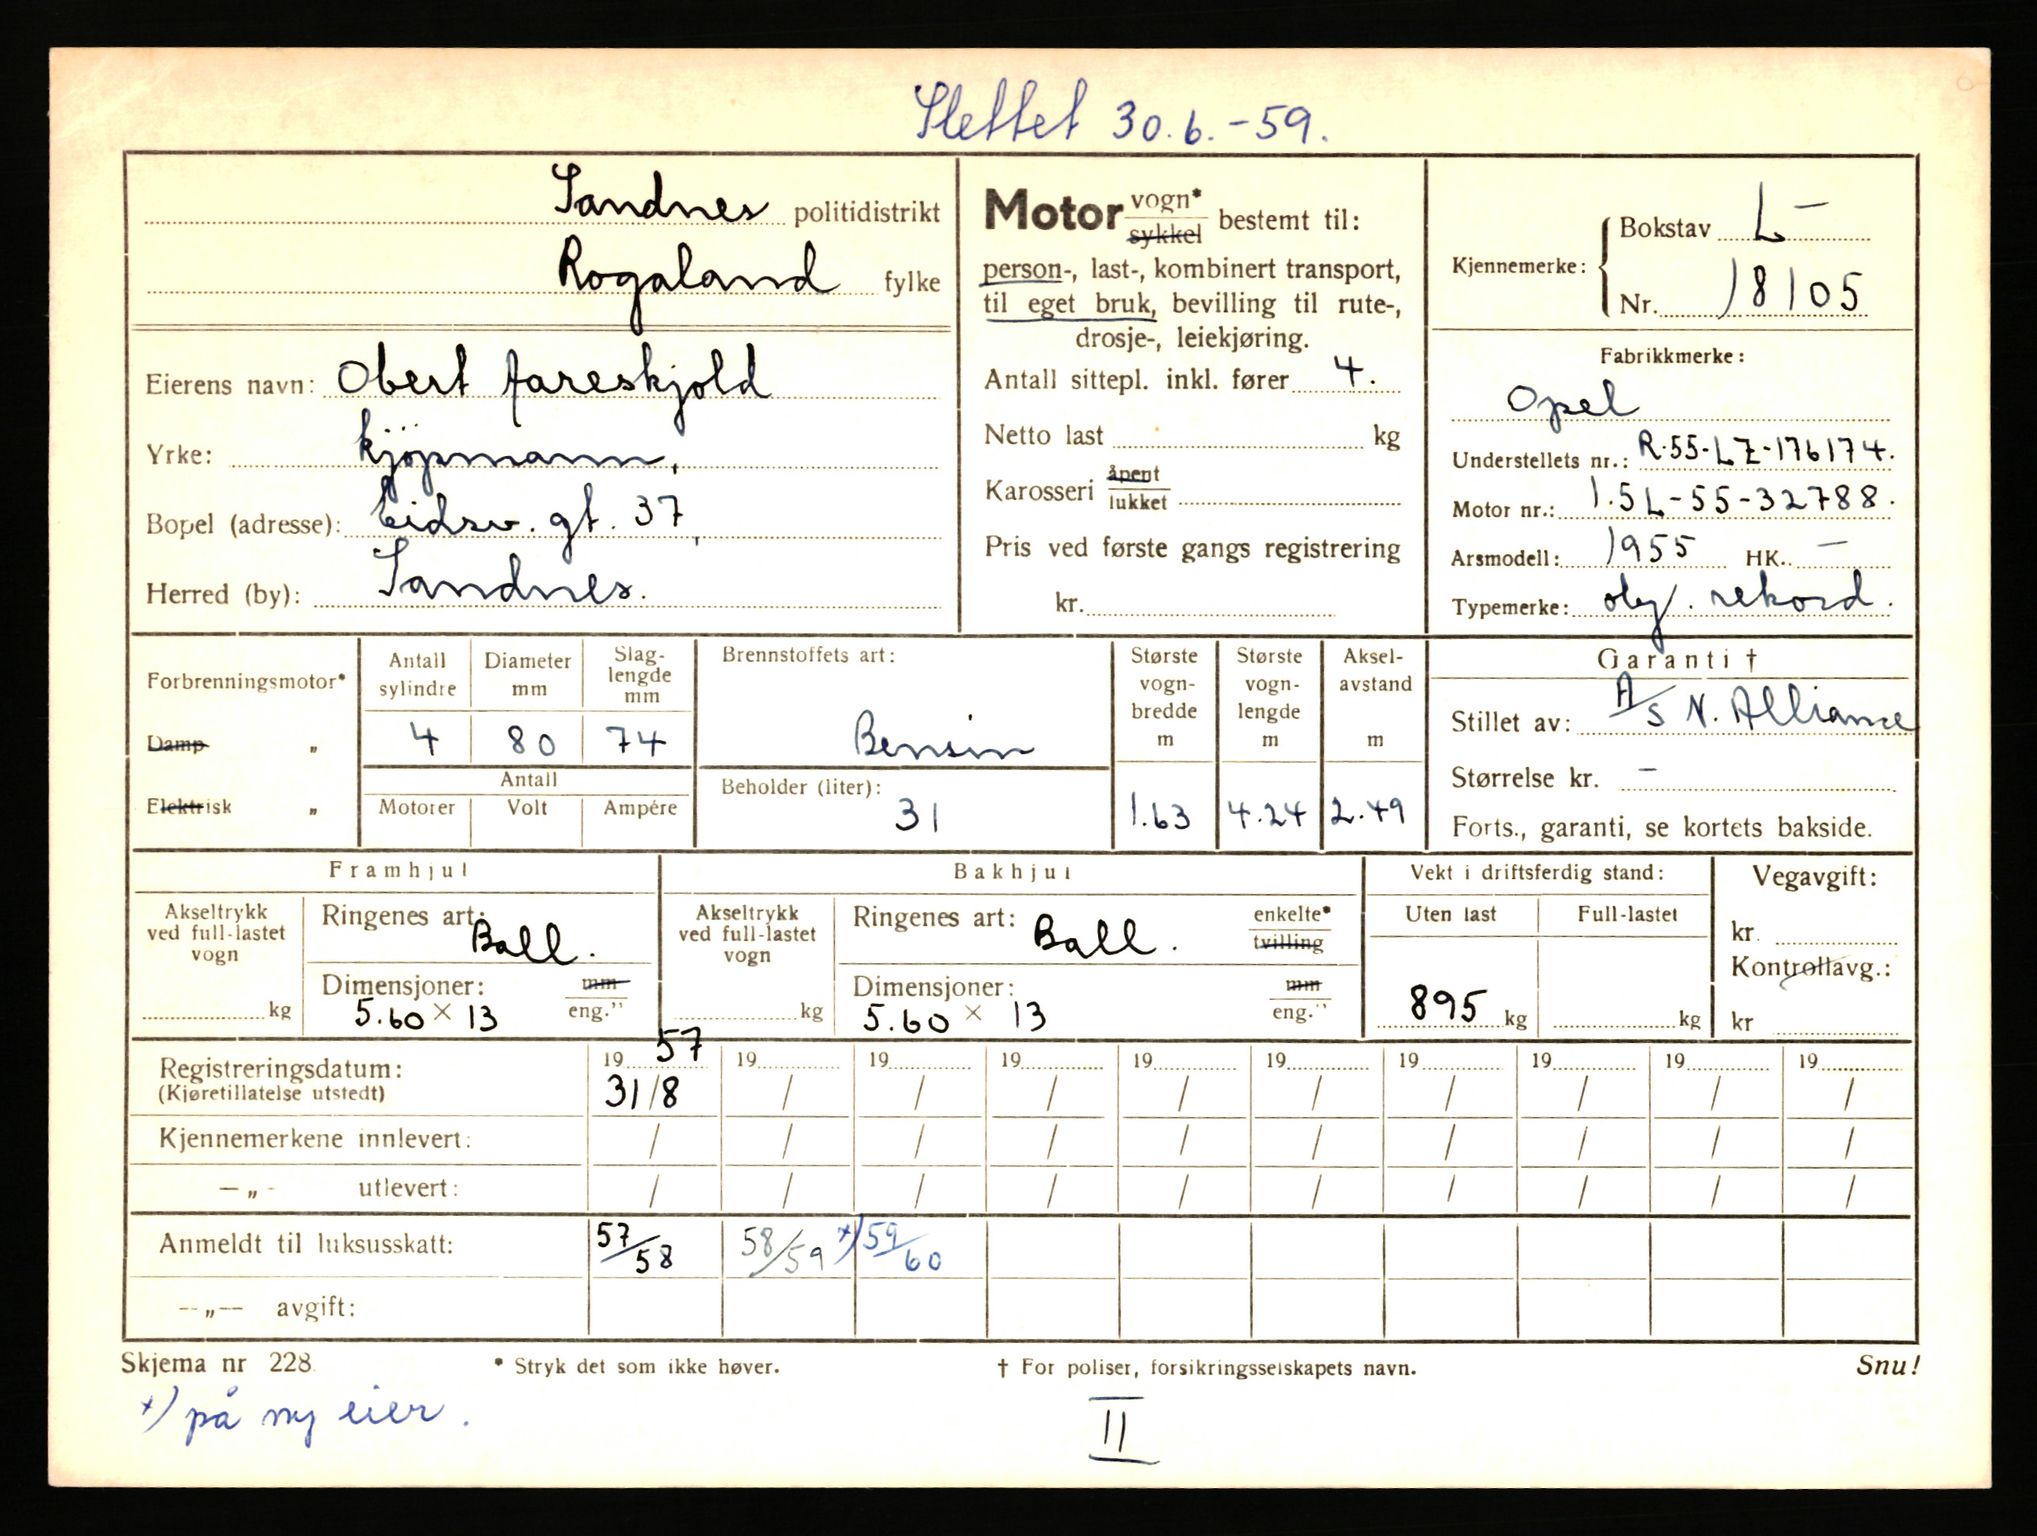 Slettet 30.6.-59.
Sandnes politidistrikt
Rogaland fylke
Eierens navn: Obert Aareskjold
Yrke: kjøpmann,
Bopel (adresse): Eidsv. gt. 37,
Herred (by): Sandnes.
Motor vogn* sykkel bestemt til:
person-, last-, kombinert transport,
til eget bruk, bevilling til rute-,
drosje-, leiekjøring.
Antall sittepl. inkl. fører 4.
Netto last kg
Karosseri åpent lukket
Pris ved første gangs registrering
kr.
Kjennemerke: Bokstav L-
Nr. 18105
Fabrikkmerke:
Opel
Understellets nr.: R-55-LZ-176174.
Motor nr.: 1.5L-55-32788.
Arsmodell: 1955 HK. -
Typemerke: oly. rekord.
Forbrenningsmotor*
Damp "
Elektrisk "
Antall sylindre Diameter mm Slaglengde mm
4 80 74
Antall
Motorer Volt Ampére
Brennstoffets art:
Bensin
Beholder (liter):
31
Største vogn-bredde m
1.63
Største vogn-lengde m
4.24
Aksel-avstand m
2.49
Garanti †
Stillet av: A/S N. Alliance
Størrelse kr. -
Forts., garanti, se kortets bakside.
Framhjul
Akseltrykk ved full-lastet vogn
kg
Ringenes art: Ball.
Dimensjoner: mm eng."
5.60 × 13
Bakhjul
Akseltrykk ved full-lastet vogn
kg
Ringenes art: Ball. enkelte* tvilling
Dimensjoner: mm eng."
5.60 × 13
Vekt i driftsferdig stand:
Uten last Full-lastet
895 kg kg
Vegavgift:
kr.
Kontrollavg.:
kr
Registreringsdatum: 19 57 19 19 19 19 19 19 19 19 19
(Kjøretillatelse utstedt) 31/8 / / / / / / / / /
Kjennemerkene innlevert: / / / / / / / / / /
—„- utlevert: / / / / / / / / / /
Anmeldt til luksusskatt: 57/58 58/59 x) 59/60
—„— avgift:
Skjema nr 228. * Stryk det som ikke høver. † For poliser, forsikringsselskapets navn. Snu!
x) på ny eier.
II